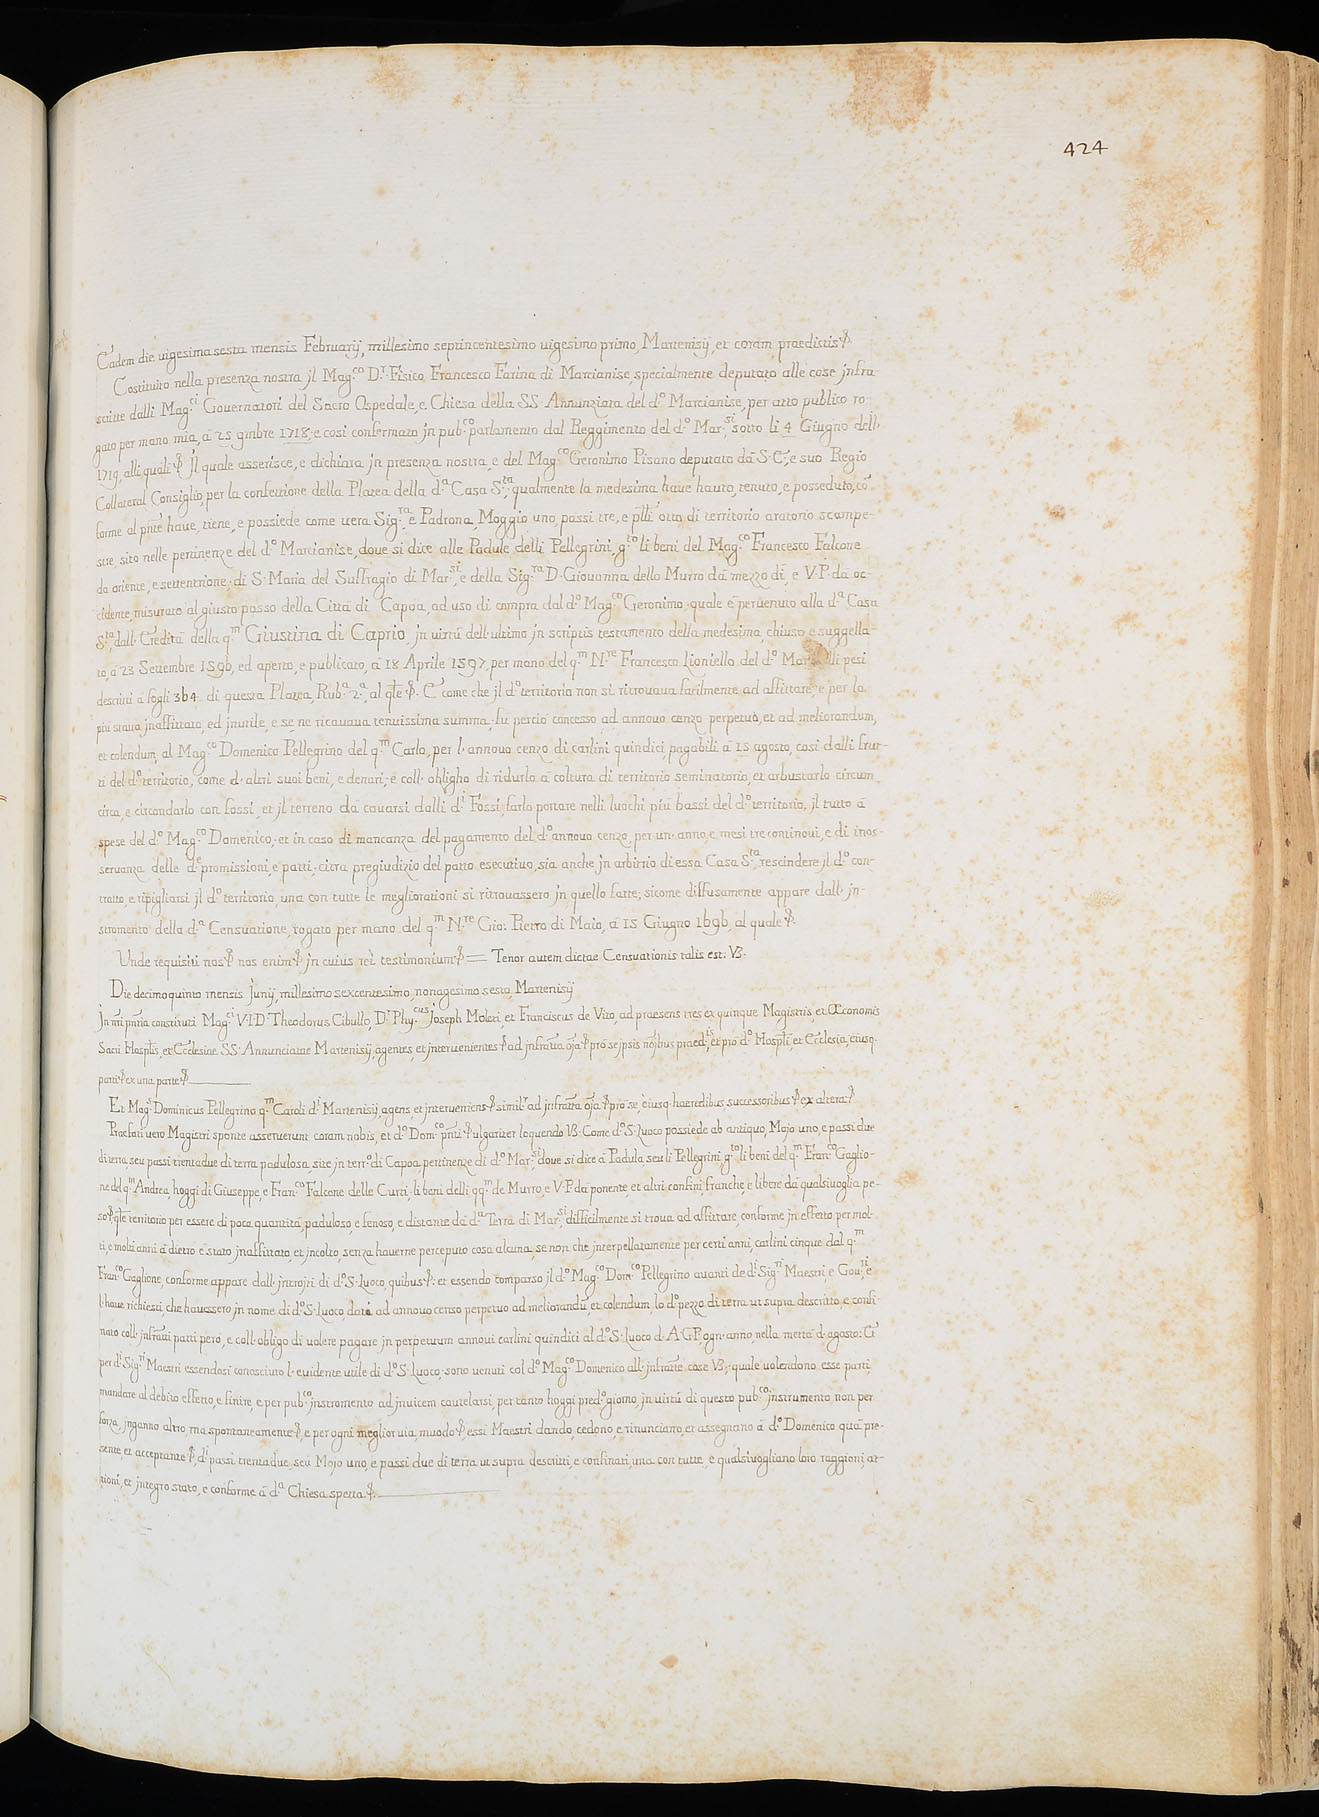 424
Eadem die uigesima sesta mensis Februarij, millesimo septincentesimo uigesimo primo, Martenisij, et coram praedictis
Costituito nella presenza nostra jl Mag.co D.r Fisico Francesco Farina di Marcianise, specialmente deputato alle cose jnfra-
scritte dalli Mag.ci Gouernatori del Sacro Ospedale, e Chiesa della SS. Annunziata del d.o Marcianise, per atto publico ro-
gato per mano mia, à 25 9mbre 1718, e così confermato jn pub.co parlamento dal Reggimento del d.o Mar.si sotto li 4 Giugno dell.
1719, alli quali jl quale asserisce, e dichiara jn presenza nostra, e del Mag.co Geronimo Pisano deputato dà S. C., e suo Regio
Collateral Consiglio, per la confettione della Platea della d.a Casa S.ta, qualmente la medesima haue hauto, tenuto, e posseduto, cō
forme al pn̄te haue, tiene, e possiede come uera Sig.ra e Padrona, Moggio uno, passi tre, e pl̄li otto di territorio aratorio scampe-
stre, sito nelle pertinenze del d.o Marcianise, doue si dice alle Padule delli Pellegrini, g.to li beni del Mag.co Francesco Falcone
da oriente, e settentrione, di S. Maria del Suffragio di Mar.si, e della Sig.ra D. Giouanna dello Murro dà mezzo dì, e V. P. dà oc-
cidente, misurato al giusto passo della Città di Capoa, ad uso di compra dal d.o Mag.co Geronimo, quale è peruenuto alla d.a Casa
S.ta dall. Eredità della q.m Giustina di Caprio, jn uirtù dell. ultimo jn scriptis testamento della medesima, chiuso e suggella-
to, à 23 Settembre 1596, ed aperto, e publicato, à 18 Aprile 1597, per mano del q.m N.re Francesco Lioniello del d.o Mar.si, alli pesi
descritti à fogli 364 di questa Platea, Rub.a 2.a, al qle. E come che jl d.o territorio non si ritrouaua facilmente ad affittare, e per lo
più staua jnaffittato, ed jnutile, e se ne ricauaua tenuissima summa, fù perciò concesso ad annouo cenzo perpetuò, et ad meliorandum,
et colendum, al Mag.co Domenico Pellegrino del q.m Carlo, per l. annouo cenzo di carlini quindici, pagabili à 15 agosto, così dalli frut-
ti del d.o territorio, come d. altri suoi beni, e denari, e coll. obligho di ridurlo à coltura di territorio seminatorio, et arbustarlo circum
circa, e circondarlo con fossi, et jl terreno dà cauarsi dalli d.i Fossi, farlo portare nelli luochi più bassi del d.o territorio, jl tutto à
spese del d.o Mag.co Domenico, et in caso di mancanza del pagamento del d.o annouo cenzo, per un. anno, e mesi tre continoui, e di inos-
seruanza delle d.e promissioni, e patti, citra pregiudizio del patto esecutiuo, sia anche jn arbitrio di essa Casa S.ta rescindere jl d.o con-
tratto, e ripigliarsi jl d.o territorio, una con tutte le megliorationi si ritrouassero jn quello fatte; sicome diffusamente appare dall. jn-
stromento della d.a Censuatione, rogato per mano del q.m N.re Gio: Pietro di Maio, à 15 Giugno 1696, al quale
Unde requisiti nos nos enim jn cuius rei testimonium = Tenor autem dictae Censuationis talis est: V3.
Die decimoquinto mensis Junij, millesimo sexcentesimo, nonagesimo sesto, Martenisij
Jn nr̄i pn̄tia constituti Mag.ci V. I. D. Theodorus Cibullo, D.r Phy.cus Joseph Moleti, et Franciscus de Vito, ad praesens tres ex quinque Magistris, et Œconomis
Sacri Hosptis, et Ecclesiae SS. Annunciatae Martenisij, agentes, et jnteruenientes ad jnfratta oja pro se jpsis nojbus praed.is, et pro d.o Hospti, et Ecclesia, eiusq.
parti ex una parte
Et Mag.s Dominicus Pellegrino q.m Caroli d.i Martenisij, agens, et jnterueniens simil.r ad jnfratta oja pro se, eiusq. haeredibus, successoribus ex altera.
Praefati uero Magistri sponte asseruerunt coram nobis, et d.o Dom.co pnti ulgariter loquendo V3. Come d.o S. Luoco possiede ab antiquo, Mojo uno, e passi due
di terra, seu passi trentadue di terra padulosa, site jn terr.o di Capoa, pertinenze di d.o Mar.si doue si dice à Padula seu li Pellegrini, g.to li beni del q.m Fran.co Gaglio-
ne del q.m Andrea, hoggi di Giuseppe, e Fran.co Falcone delle Curti, li beni delli qq.m de Murro, e V. P. dà ponente, et altri confini, franche, e libere dà qualsiuoglia pe-
so qle territorio per essere di poca quantità, paduloso, e fenoso, e distante dà d.a Terra di Mar.si, difficilmente si troua ad affittare, conforme jn effetto per mol-
ti, e molti anni à dietro è stato jnaffittato, et jncolto, senza hauerne perceputo cosa alcuna, se non che jnterpellatamente per certi anni, carlini cinque dal q.m
Fran.co Gaglione, conforme appare dall. jntrojti di d.o S. Luoco, quibus: et essendo comparso jl d.o Mag.co Dom.co Pellegrino auanti de d.i Sig.ri Maestri, e Gou.ri, e
l. haue richiesti che hauessero jn nome di d.o S. Luoco, dato ad annouo censo perpetuo ad meliorandū, et colendum, lo d.o pezzo di terra ut supra descritto, e confi-
nato coll. jnfratti patti però, e coll. obligo di uolere pagare jn perpetuum annoui carlini quindici al d.o S. Luoco d. A. G. P. ogn. anno, nella mettà d. agosto: Et
per d.i Sig.ri Maestri essendosi conosciuto l. euidente utile di d.o S. Luoco, sono uenuti col d.o Mag.co Domenico all. jnfratte cose V3, quale uolendono esse parti,
mandare al debito effetto, e finire, e per pub.co jnstromento ad jnuicem cautelarsi, per tanto hoggi pred.o giorno, jn uirtù di questo pub.co jnstrumento, non per
forza, jnganno altro, ma spontaneamente, e per ogni meglior uia, muodo, essi Maestri dando, cedono, e rinunciano, et assegnano à d.o Domenico quà pre-
sente, et acceptante d.i passi trentadue, seù Mojo uno, e passi due di terra ut supra descritti, e confinati, una con tutte, e qualsiuogliano loro raggioni, at-
tioni, et jntegro stato, e conforme à d.a Chiesa spetta